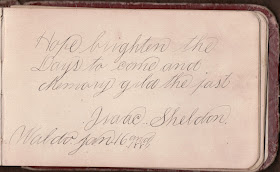 Hope brighten the
Days to come and
Memory gild the past
Isaac Sheldon.
Waldo Jan 16